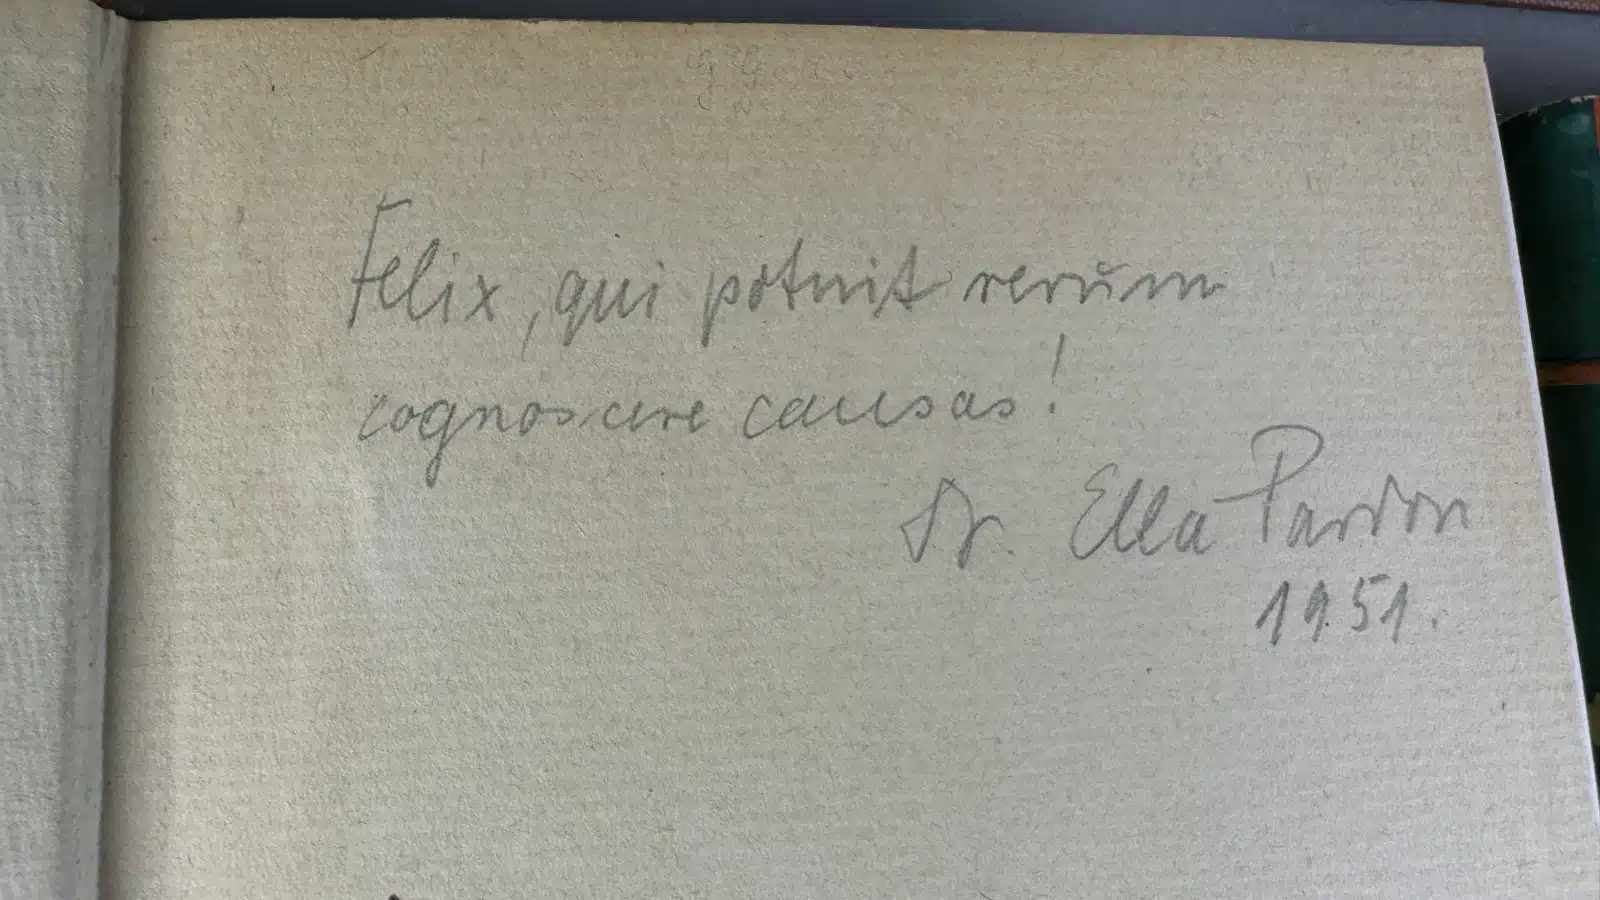 Felix, qui potuit rerum
cognoscere causas!
Dr. Ella Pardon
1951.